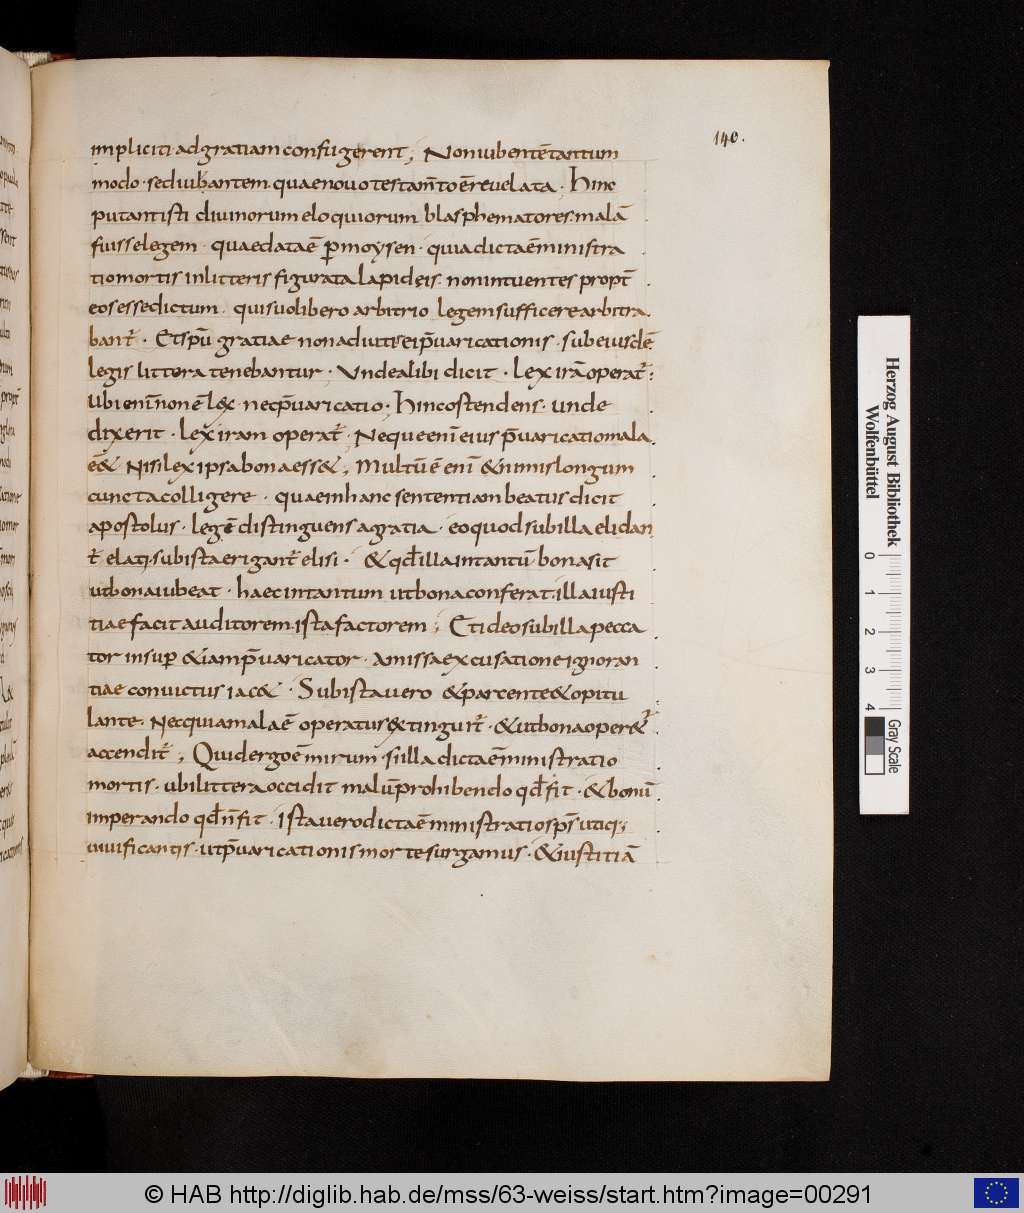 140.
impliciti adgratiam confugerent; Non iubentē tantum
modo · sed iubantem quae nouo testam̄to ē reuelata · Hinc
putant isti diuinorum eloquiorum blasphematores malā
fuisse legem · quae data ē p̱ moysen · quia dicta ē ministra
tio mortis in litteris figurata lapideis · non intuentes propt̄
eos esse dictum · qui suo libero arbitrio legem sufficere arbitra
bant᷑ · Et sp̄u gratiae non adiuti rei p̄uaricationis · sub eiusdē
legis littera tenebantur · Unde alibi dicit · Lex irā operat᷑ ·
ubi eni ̄ non ē lex · nec p̄uaricatio · Hinc ostendens · unde
dixerit · lex iram operat᷑ · Neque eni ̄ eius p̄uaricatio mala
ē & Nisi lex ipsa bona ess& ; Multū ē eni ̄ & nimis longum
cuncta colligere · quae in hanc sententiam beatus dicit
apostolus · legē distinguens a gratia · eo quod sub illa elidan
t᷑ elati · sub ista erigant᷑ elisi · & qd̄ illa in tantū bona sit
ut bona iubeat · haec in tantum ut bona conferat · illa iusti
tiae facit auditorem · ista factorem ; Et ideo sub illa pecca
tor insup̱ & iam p̄uaricator · amissa excusatione ignoran
tiae conuictus iac& · Sub ista uero & parcente & opitu
lante · Nec qui a mala ē operatus extinguit᷑ · & ut bona oper&᷑
accendit᷑ ; Quid ergo ē mirum · si illa dicta ē ministratio
mortis · ubi littera occidit malū prohibendo qd̄ fit · & bonū
imperando qd̄ n̄ fit · Ista uero dicta ē ministratio sp̄s utiq;
uiuificantis · ut p̄uaricationis morte surgamus · & iustitiā
Herzog August Bibliothek
Wolfenbüttel
0 1 2 3 4
Gray Scale
© HAB http://diglib.hab.de/mss/63-weiss/start.htm?image=00291